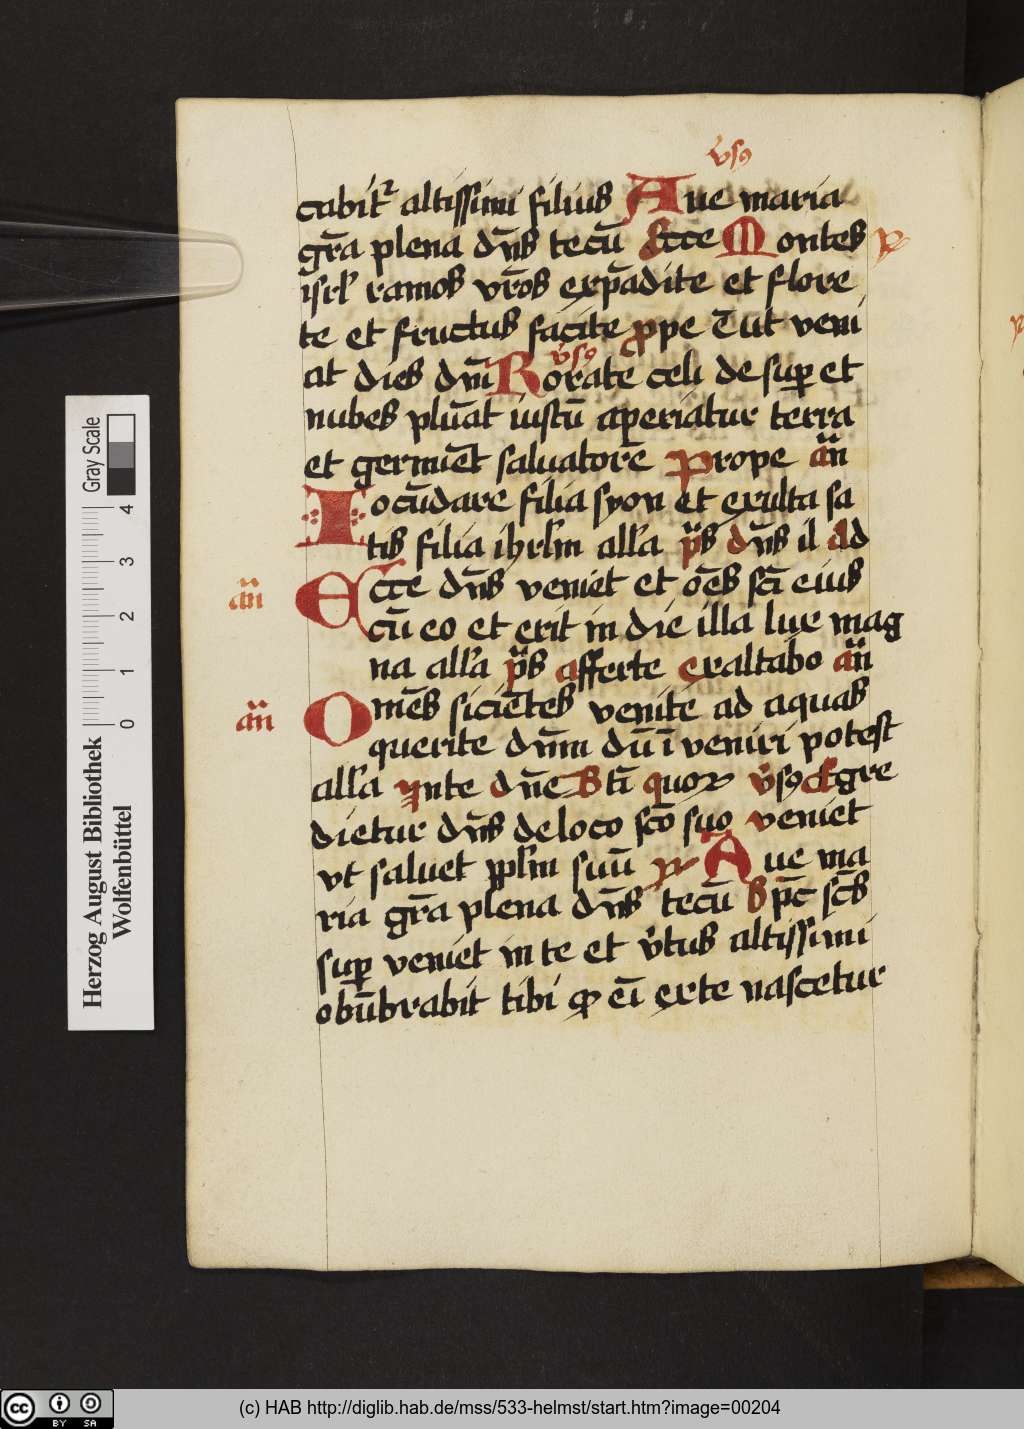 v̄sꝯ
cabit᷑ altissimi filius Aue maria
gr̄a plena dn̄s tecū Ecce Montes
isrl̄ ramos vr̄os exp̄adite et flore
te et fructus facite ꝓpe ē ut veni
v̄sꝯ
at dies dn̄i Rorate celi desuꝑ et
nubes plūat iustū aperiatur terra
et germiēt saluatorē Prope an̄
Iocūdare filia syon et exulta sa
tis filia ihrl̄m all'a p̄s dn̄s il ad
an̄ Ecce dn̄s veniet et oēs scī eius
cū eo et erit in die illa lux mag
na all'a p̄s afferte exaltabo an̄
an̄ Omēs siciētes venite ad aquas
querite dn̄m dū ī veniri potest
all'a nte dn̄e Btī quoꝝ v̄sꝯ Egre
dietur dn̄s deloco scō suo veniet
vt saluet ppl̄m suū Aue ma
ria gr̄a plena dn̄s tecū Sp̄c scs̄
suꝑ veniet in te et v̄tus altissimi
obūbrabit tibi ꝙ eī exte nascetur
Gray Scale
0 1 2 3 4
Herzog August Bibliothek
Wolfenbüttel
cc BY SA
(c) HAB http://diglib.hab.de/mss/533-helmst/start.htm?image=00204